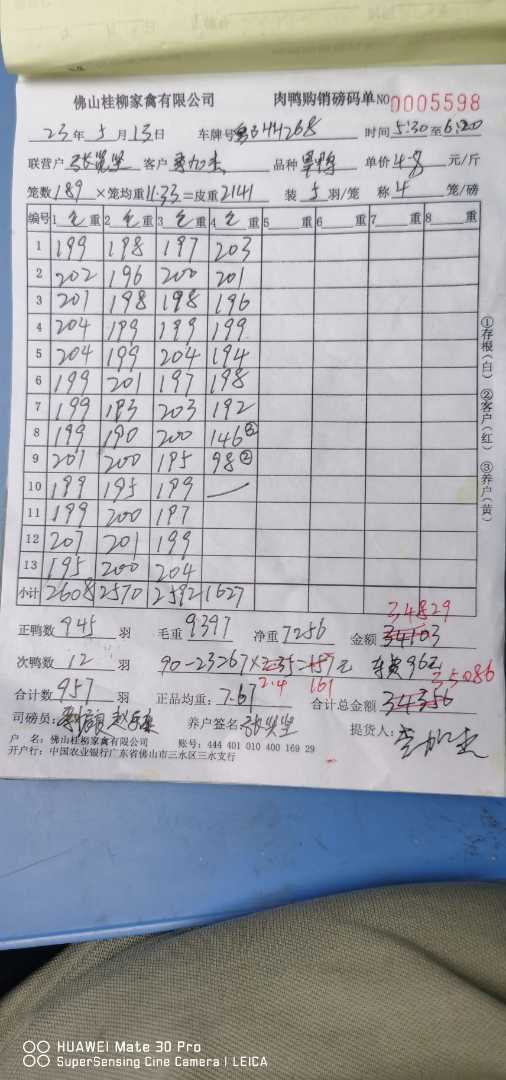 佛山桂柳家禽有限公司 肉鸭购销磅码单 NO 0005598
23年5月13日 车牌号 44268 时间5:30至6:20
联营户 客户 品种 单价4.8元/斤
笼数189×笼均重11.33=皮重2141 装5羽/笼 称4笼/磅
编号 1毛重 2毛重 3毛重 4毛重 5重 6重 7重 8重
1 199 198 197 203
2 202 196 200 201
3 201 198 198 196
4 204 199 199 199
5 204 199 204 194
6 199 201 197 198
7 199 193 203 192
8 199 190 200 146③
9 201 200 195 98②
10 199 195 199 —
11 199 200 197
12 207 201 199
13 195 200 204
小计 2608 2570 2592 1627
①存根(白) ②客户(红) ③养户(黄)
34829
正鸭数945羽 毛重9397 净重7256 金额
次鸭数12羽 90-23=67× = 元 车费96元
2.4 161 35086
合计数957羽 正品均重:7.67 合计总金额
司磅员: 养户签名: 提货人:
户 名:佛山桂柳家禽有限公司 账号:444 401 010 400 169 29
开户行:中国农业银行广东省佛山市三水区三水支行
HUAWEI Mate 30 Pro
SuperSensing Cine Camera | LEICA